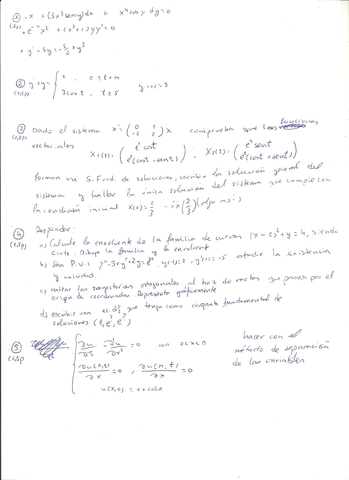 ① · x + (3x² seny)dx + x⁴ cosy dy = 0
· e⁻ˣ y² + (x²+1) y y' = 0
· y' - 5y = -5/2 x y³
② y' + y = { 0 ≤ t < π
3 cost, t ≥ y(0) = 3
③ Dado el sistema x' = (0 1 -2 2) x comprueba que las funciones
vectoriales
X₁(t) = (eᵗ cost eᵗ(cost - sent)), X₂(t) = (eᵗ sent eᵗ(cost + sent))
forman un S. Fund. de soluciones, escribir la solución general del
sistema y hallar la única solución del sistema que cumple con
la condición inicial x(0) =
④ Responder:
a) Calcule la envolvente de la familia de curvas (x - c)² + y = 4, siendo
c cte. Dibuja la familia y la envolvente
b) Sea P.V.I y'' - 3xy' + 2y = , y(1) = 2, y'(1) = -5 estudie la existencia
y unicidad.
c) Hallar las trayectorias ortogonales al haz de rectas que pasan por el
origen de coordenadas. Represente gráficamente
d) escribir una ec. dif. que tenga como conjunto fundamental de
soluciones
⑤ { ∂u/∂t - ∂²u/∂x² = 0 con 0 < x < π
∂u(0,t)/∂x = 0, ∂u(π,t)/∂x = 0
u(x,0) = x + cosx
hacer con el
método de separación
de las variables